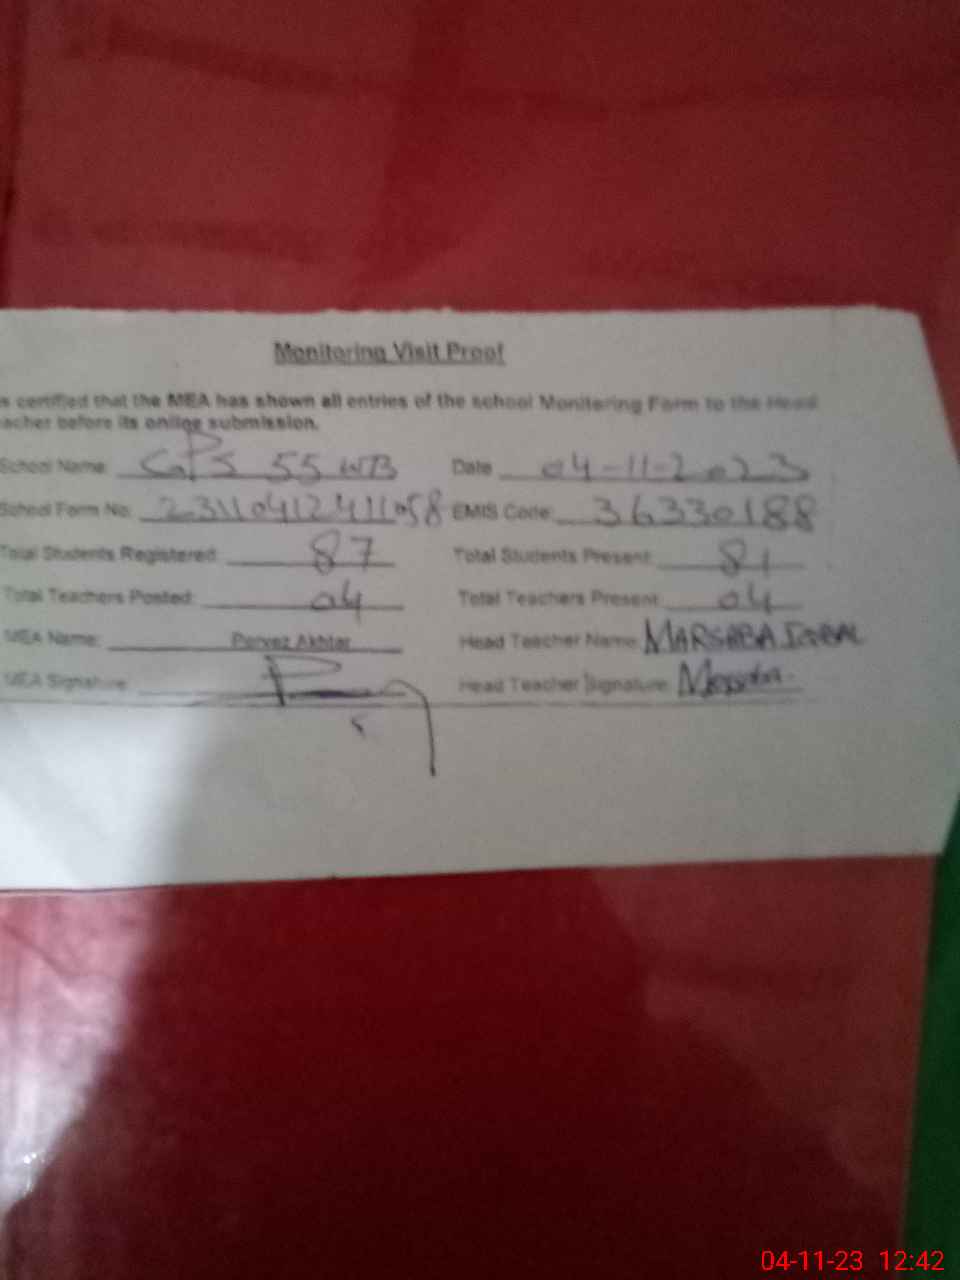 Monitoring Visit Proof
certified that the MEA has shown all entries of the school Monitoring Form to the Head
before its online submission.
School Name: GPS 55 WB Date 04-11-2023
School Form No: EMIS Code: 36330188
Total Students Registered: 87 Total Students Present: 81
Total Teachers Posted: 04 Total Teachers Present: 04
MEA Name: Pervez Akhtar Head Teacher Name: IQBAL
MEA Signature: Head Teacher Signature:
04-11-23 12:42